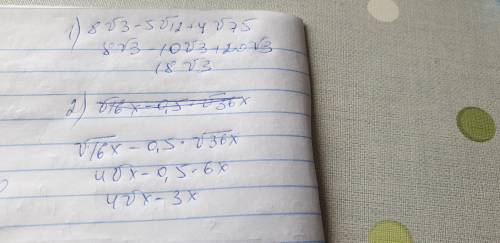 1) 8√3-5√12+4√75
8√3-10√3+20√3
18√3
2) √16x-0,5·√36x
√16x-0,5·√36x
4√x-0,5·6x
4√x-3x